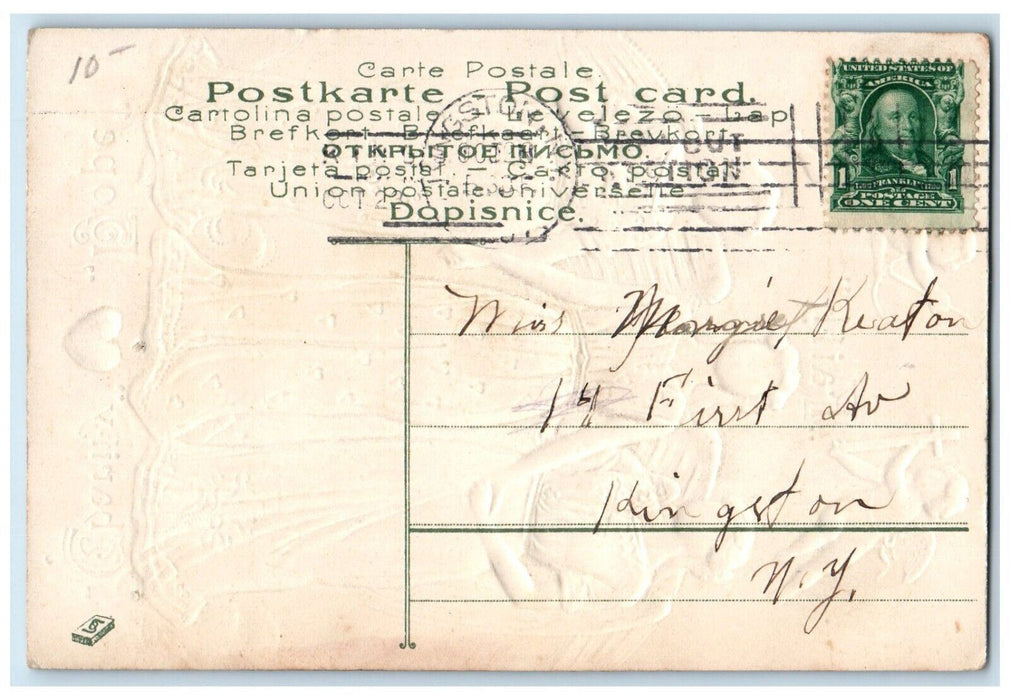 10-
Carte Postale.
Postkarte – Post card.
Cartolina postale – Levelezo-Lap
Brefkort – Briefkaart – Brevkort.
ОТКРЫТОЕ ПИСЬМО.
Tarjeta postal. – Carto postal
Union postale universelle
Dopisnice.
OCT 2
UNITED STATES OF
AMERICA
1 FRANKLIN 1
POSTAGE
ONE CENT
Miss Margiet Keaton
14 First Av
Kingston
N.Y.
"Hope"
"Charity"